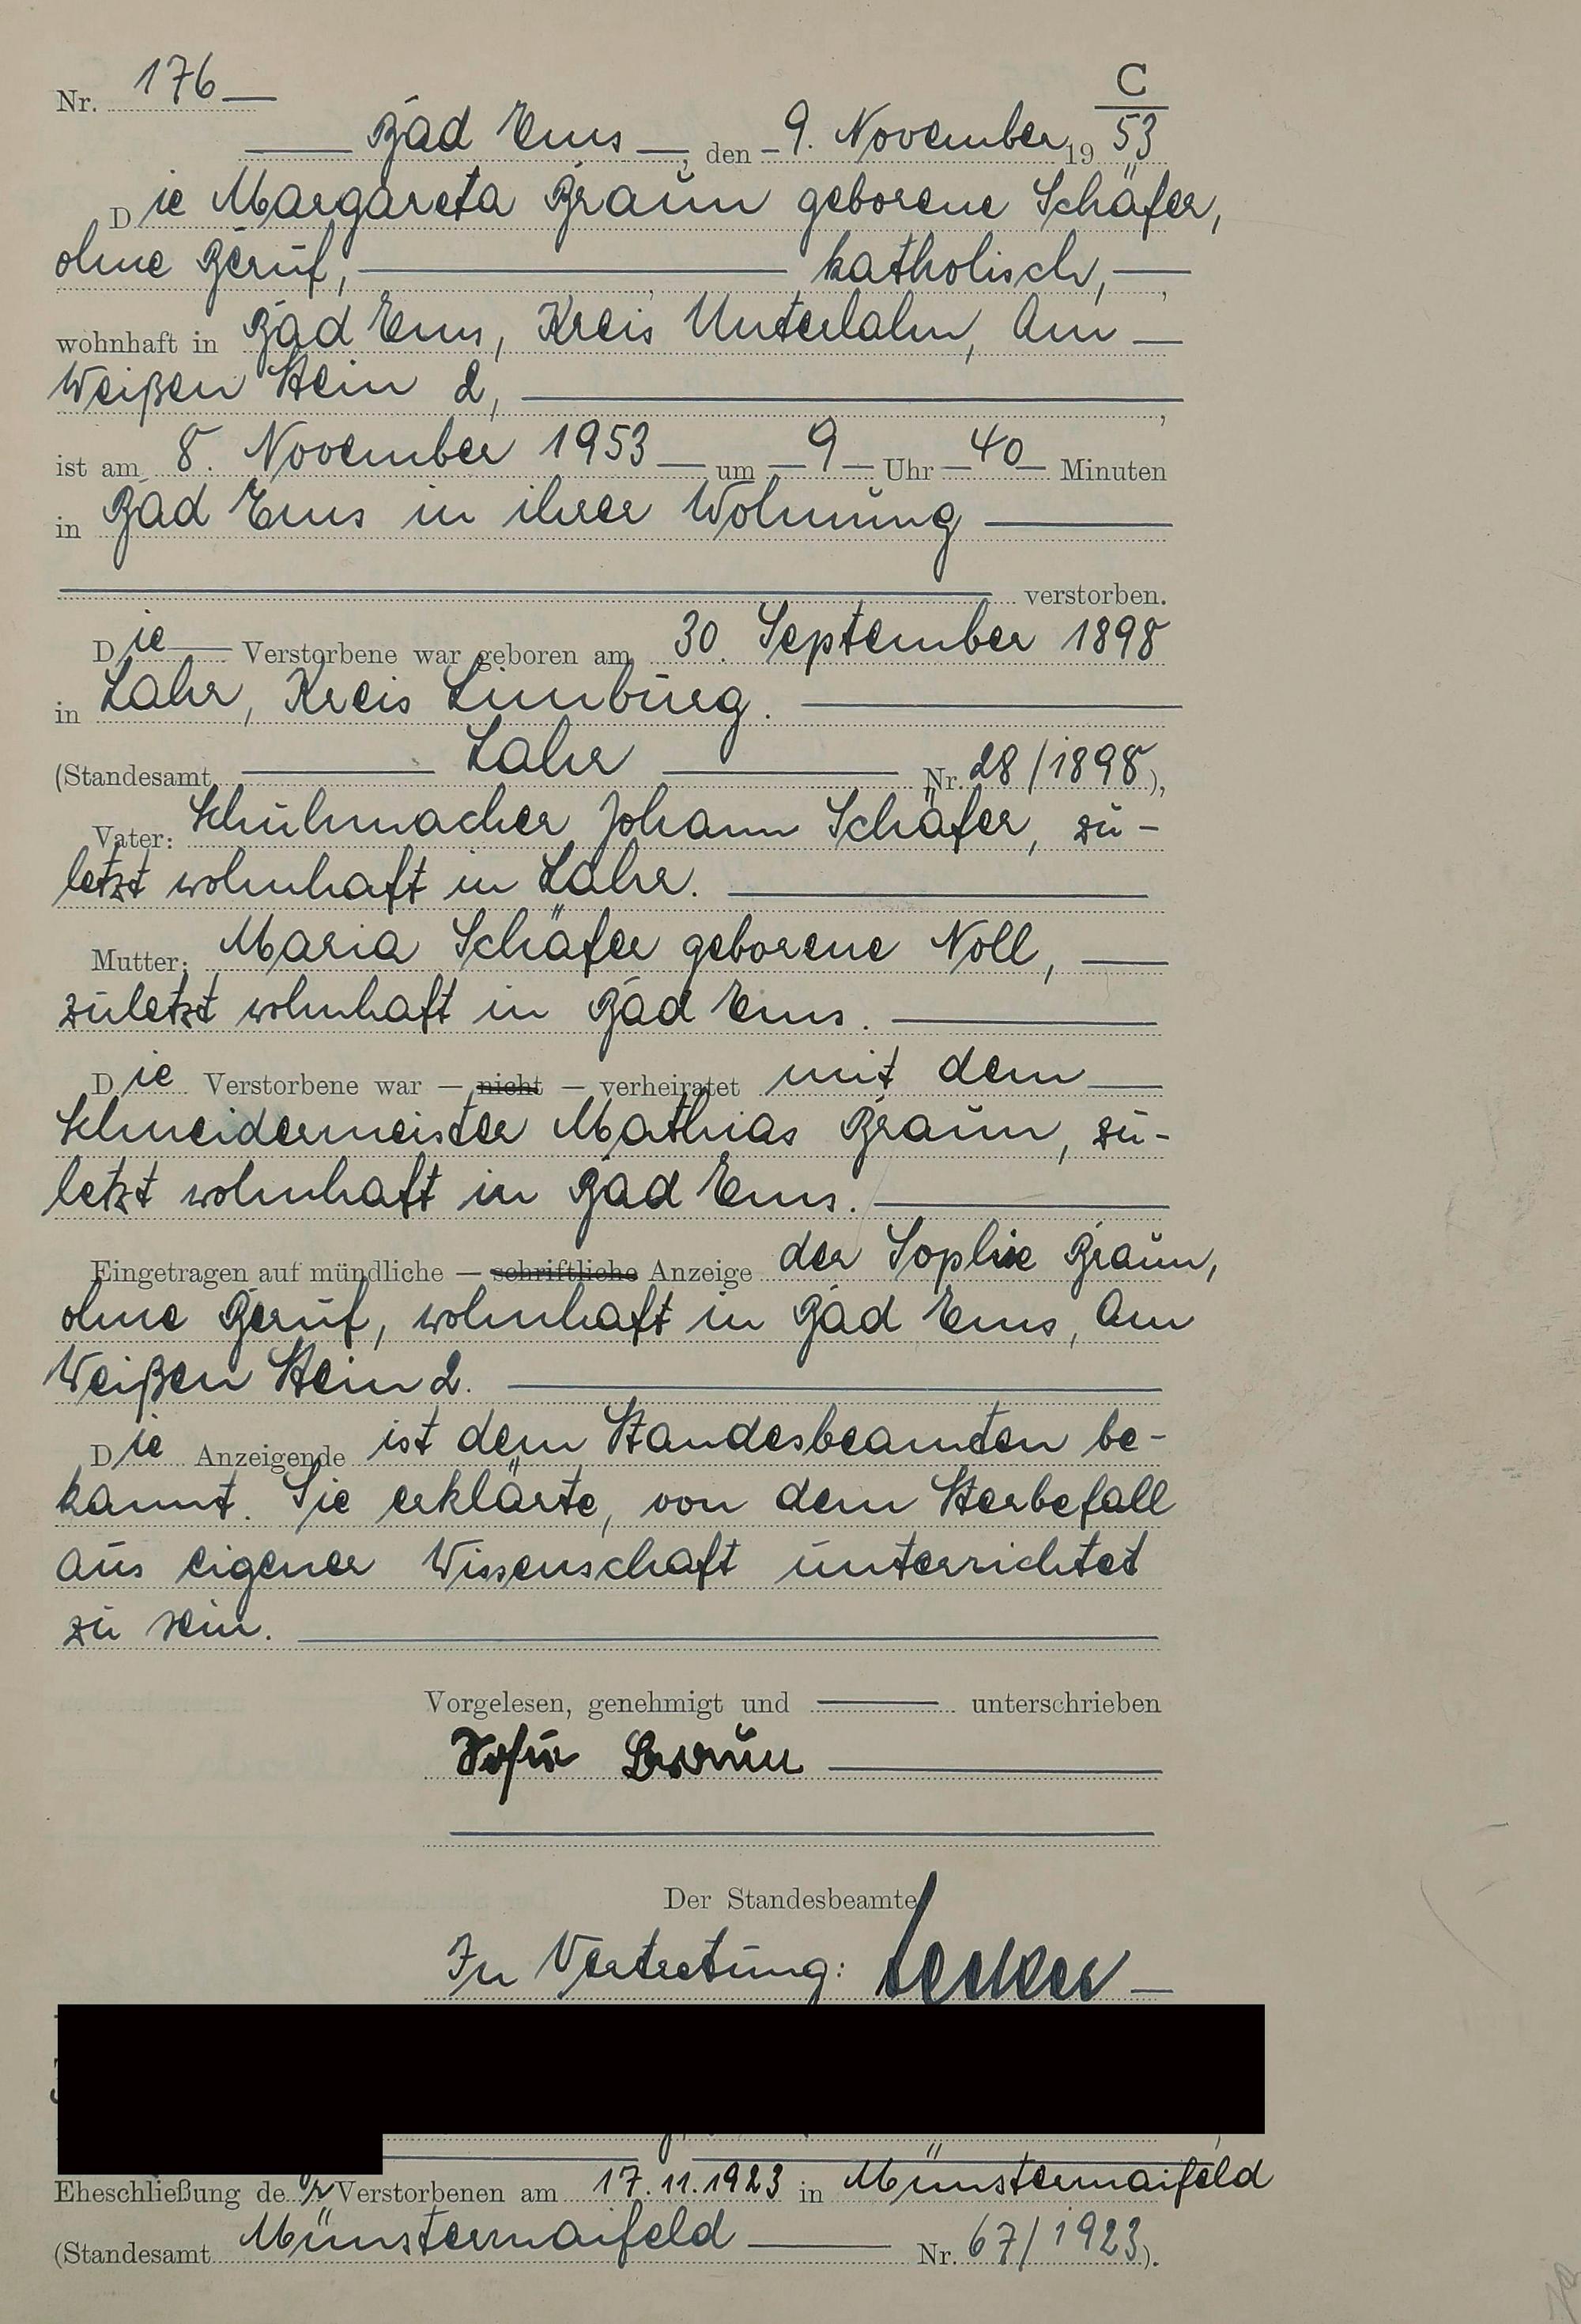 C
Nr. 176
Bad Ems, den 9. November 1953
Die Margareta Braun geborene Schäfer,
ohne Beruf, katholisch,
wohnhaft in Bad Ems, Kreis Unterlahn, Am
Weißen Stein 2,
ist am 8. November 1953 um 9 Uhr 40 Minuten
in Bad Ems in ihrer Wohnung
verstorben.
Die Verstorbene war geboren am 30. September 1898
in Lahr, Kreis Limburg.
(Standesamt Lahr Nr. 28/1898),
Vater: Schuhmacher Johann Schäfer, zu-
letzt wohnhaft in Lahr.
Mutter: Maria Schäfer geborene Noll,
zuletzt wohnhaft in Bad Ems.
Die Verstorbene war — nicht — verheiratet mit dem
Schneidermeister Mathias Braun, zu-
letzt wohnhaft in Bad Ems.
Eingetragen auf mündliche — schriftliche Anzeige der Sophie Braun,
ohne Beruf, wohnhaft in Bad Ems, Am
Weißen Stein 2.
Die Anzeigende ist dem Standesbeamten be-
kannt. Sie erklärte, von dem Sterbefall
aus eigener Wissenschaft unterrichtet
zu sein.
Vorgelesen, genehmigt und unterschrieben
Sofie Braun
Der Standesbeamte
In Vertretung:
Eheschließung der Verstorbenen am 17.11.1923 in Münstermaifeld
(Standesamt Münstermaifeld Nr. 67/1923).